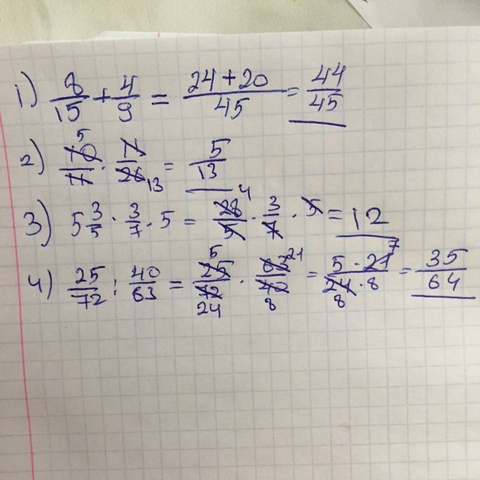 1) 8/15 + 4/9 = (24+20)/45 = 44/45
2) 10/11 · 11/26 = 5/13
3) 5 3/5 · 3/7 · 5 = 28/5 · 3/7 · 5 = 12
4) 25/72 : 40/63 = 25/72 · 63/40 = (5 · 21)/(24 · 8) = 35/64